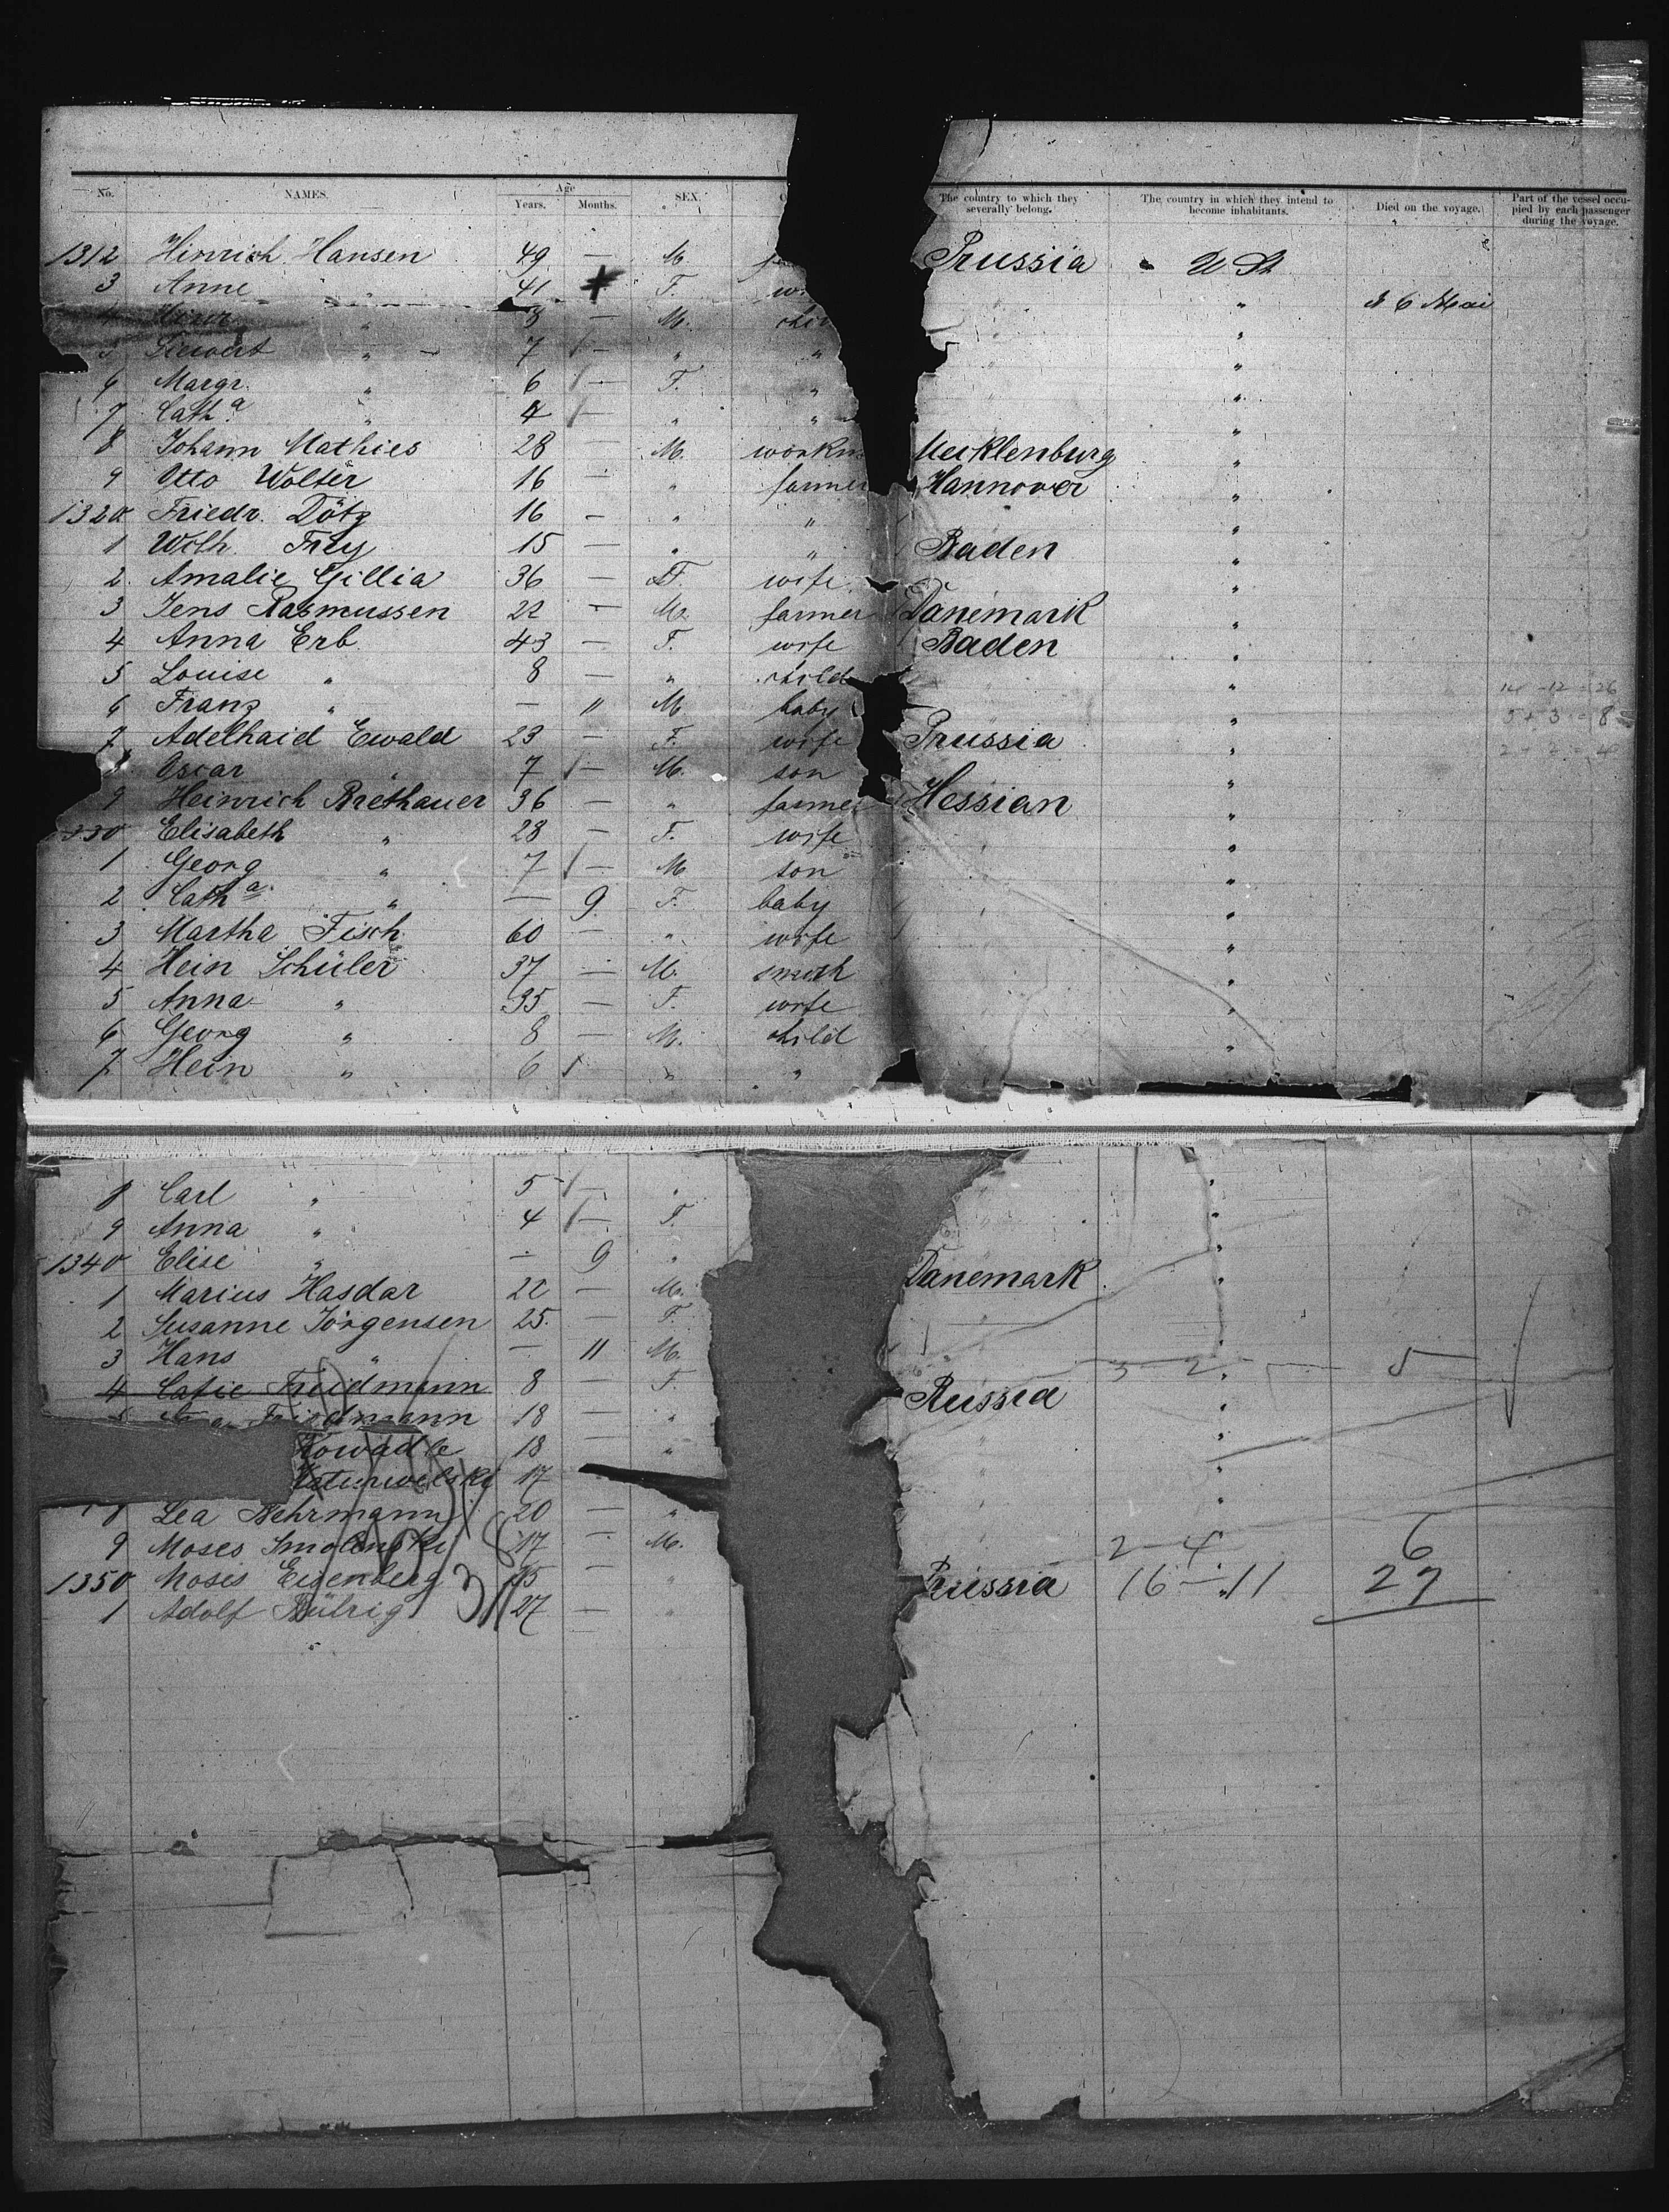 No. NAMES. Age Years. Months. SEX. The country to which they severally belong. The country in which they intend to become inhabitants. Died on the voyage. Part of the vessel occupied by each passenger during the voyage.
1312 Hinrich Hansen 49 — M. Prussia U St
3 Anne " 41 — F. " 6 Mai
4 " 8 — M. "
5 Siewert " 7 — " " "
6 Margr. " 6 — F. " "
7 Cath.a " 4 — " " "
8 Johann Mathies 28 — M. workm Mecklenburg "
9 Otto Wolter 16 — " farmer Hannover "
1320 Friedr. Dötz 16 — " " "
1 Wilh. Frey 15 — " " Baden "
2 Amalie Gillia 36 — F. wife "
3 Jens Rasmussen 22 — M. farmer Danemark "
4 Anna Erb 43 — F. wife Baden "
5 Louise " 8 — " child " 14 - 12 = 26
6 Franz " — 11 M baby " 5 + 3 = 8
7 Adelhaid Ewald 23 — F. wife Prussia " 2 + 2 = 4
8 Oscar " 7 — M. son "
9 Heinrich Brethauer 36 — " farmer Hessian "
1330 Elisabeth " 28 — F. wife "
1 Georg " 7 — M. son "
2 Cath.a " — 9 F. baby "
3 Martha Fisch 60 — " wife "
4 Hein Schüler 37 — M. smith "
5 Anna " 35 — F. wife "
6 Georg " 8 — M. child "
7 Hein " 6 " "
8 Carl " 5 — " "
9 Anna " 4 — F. "
1340 Elise " — 9 " "
1 Marius Hasdar 22 — M. Danemark "
2 Susanne Jörgensen 25. — F.
3 Hans " — 11 M. "
4 Friedmann 8 — F. Russia 3 — 2 — 5
Friedmann 18 — " "
Kowadlo 18 — " "
17 "
8 Lea Behrmann 20 — " "
9 Moses Smolenski 17 — M. 2 — 4 6
1350 Moses Eisenberg — " Prussia 16 — 11 27
1 Adolf Bührig 27 — "